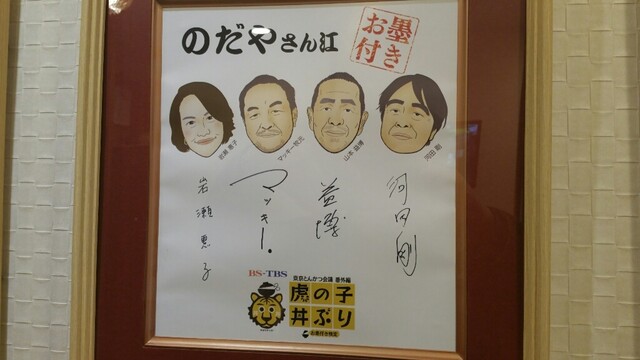 のだやさん江
お墨
付き
岩瀬 惠子
マッキー牧元
山本 益博
河田 剛
岩瀬惠子
マッキー.
益博
河田剛
BS-TBS
東京とんかつ会議 番外編
虎の子
丼ぶり